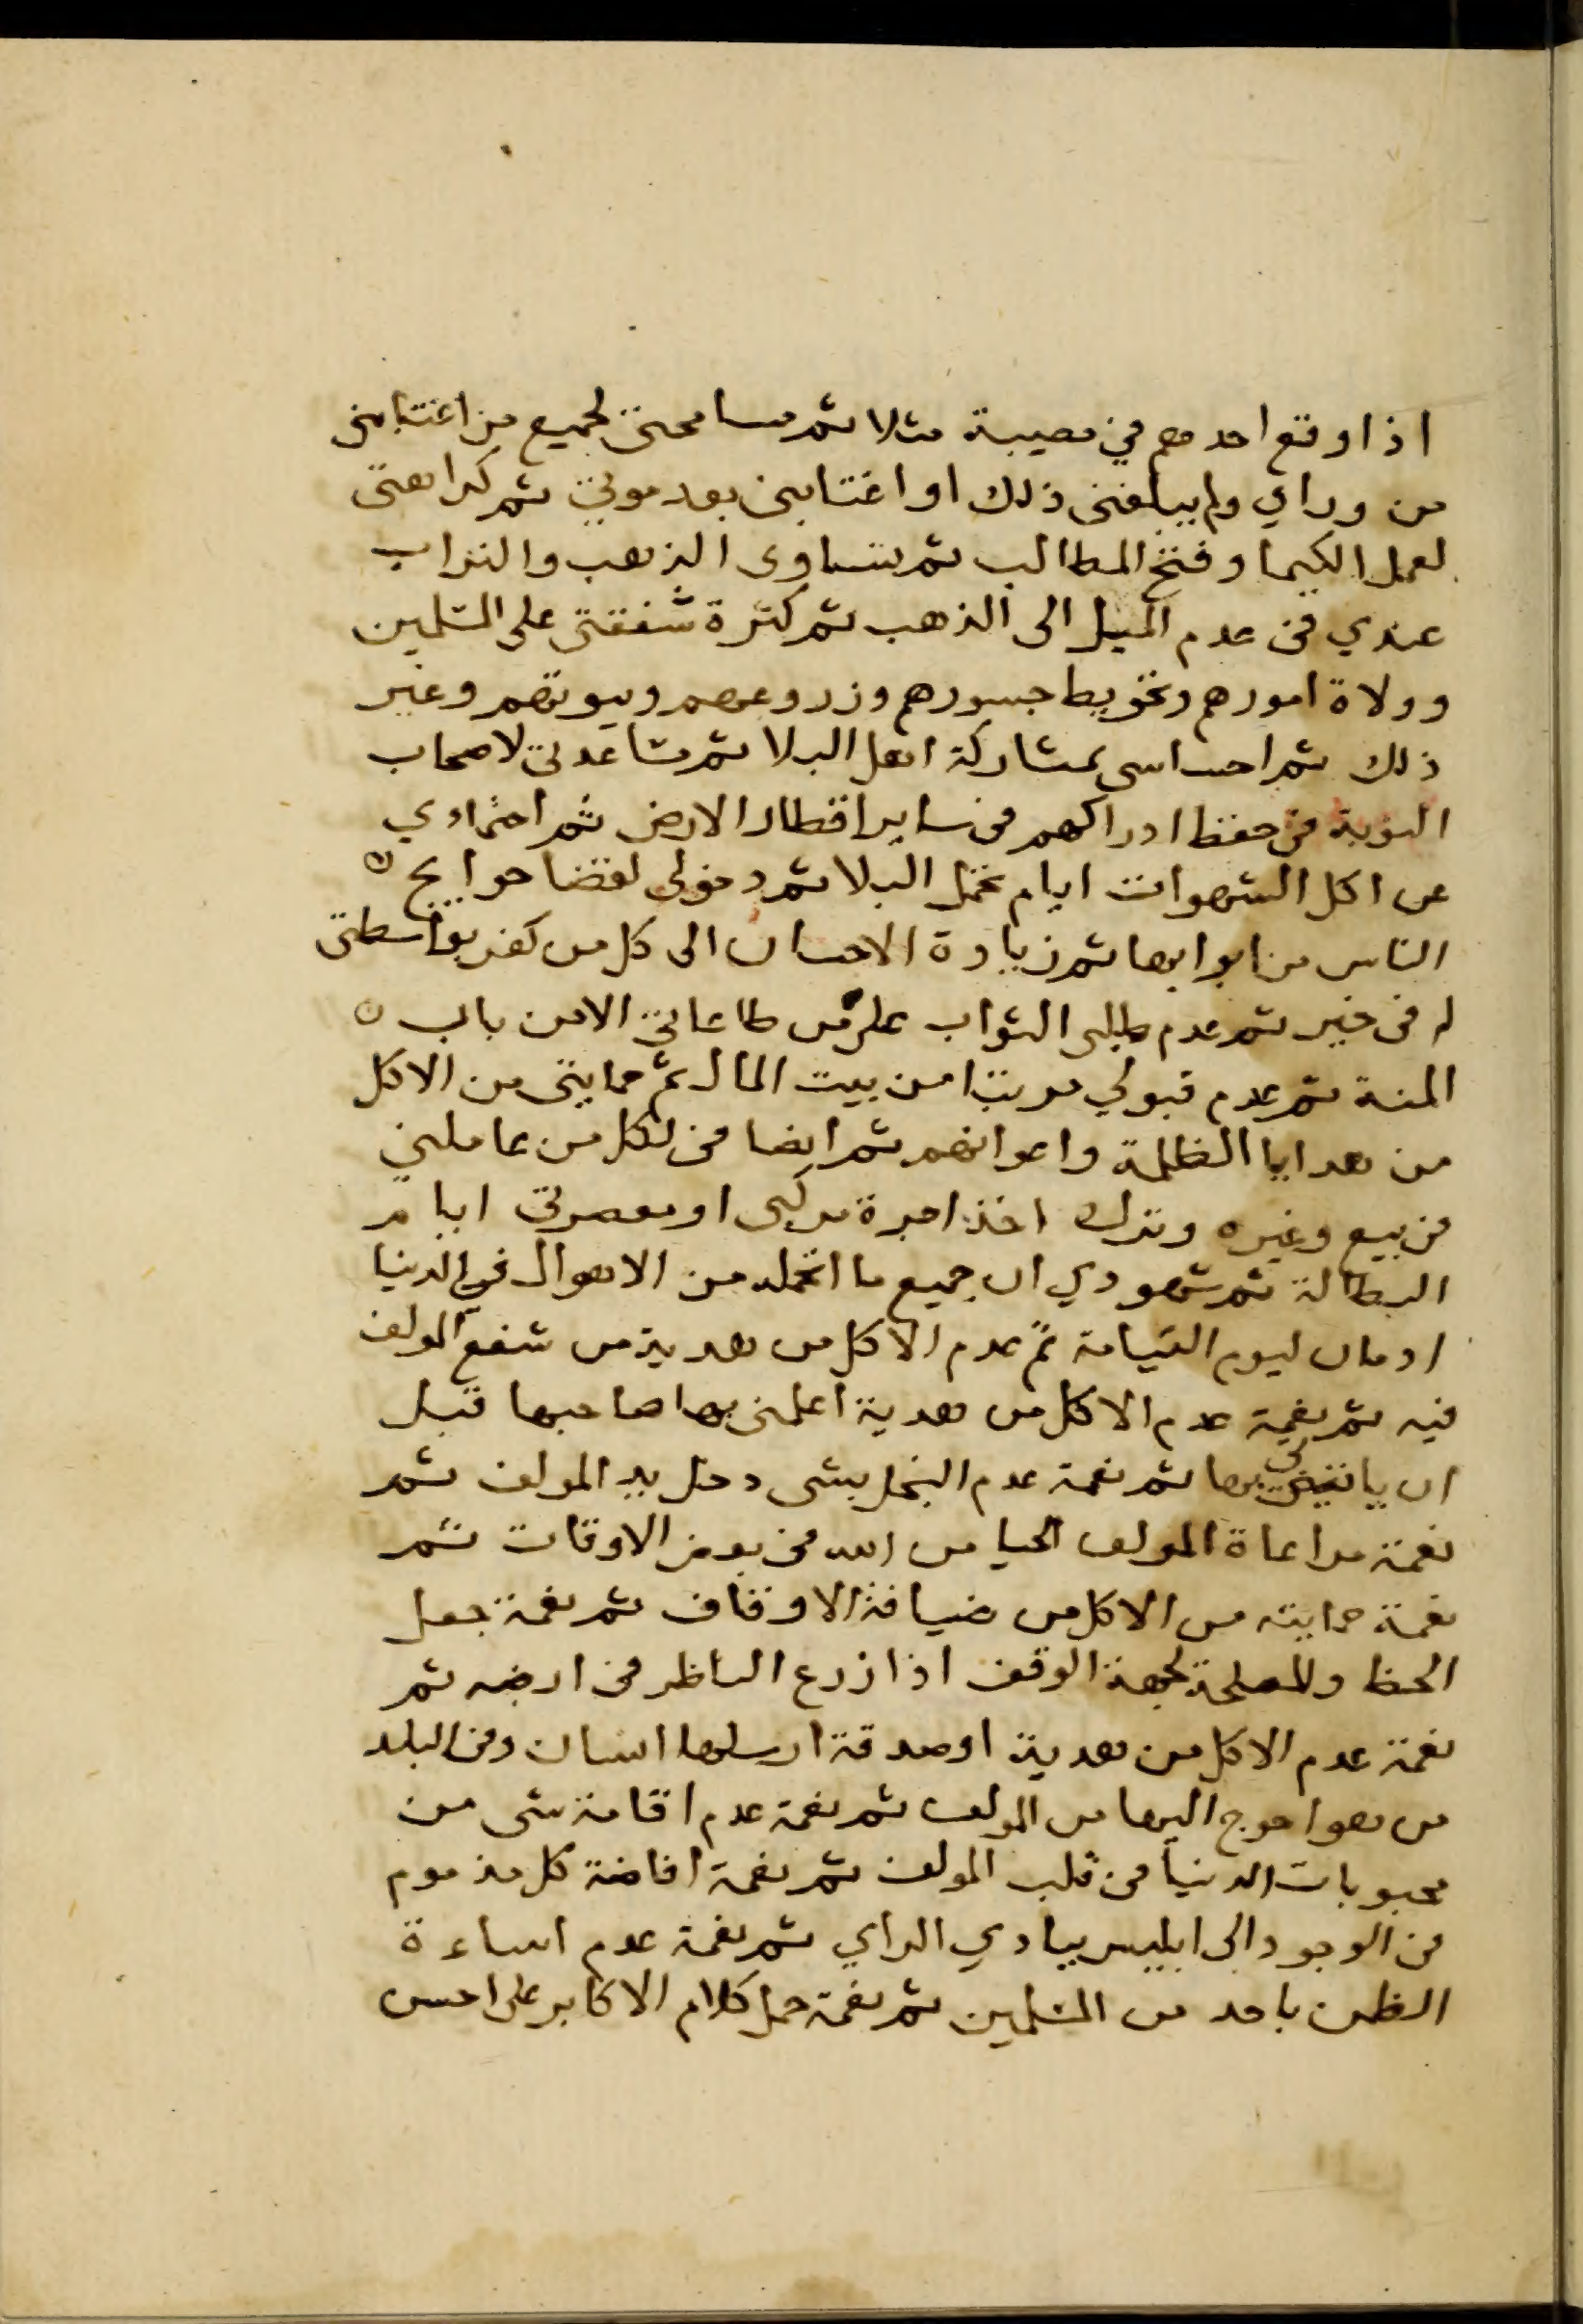 اذا وقع احدهم في مصيبة مثلا ثم مسامحتي لجميع من اغتابني
من وراي ولم يبلغني ذلك او اغتابني بعد موتي ثم كراهتي
لعمل الكيميا وفتح المطالب ثم تساوى الذهب والتراب
عندي في عدم الميل الى الذهب ثم كثرة شفقتي على المسلمين
وولاة امورهم وتحويط جسورهم وزروعهم وبيوتهم وغير
ذلك ثم احساسي بمشاركة اهل البلا ثم مساعدتي لاصحاب
النوبة في حفظ ادراكهم في ساير اقطار الارض ثم احتماءي
عن اكل الشهوات ايام تحمل البلا ثم دخولي لقضا حوايج
الناس من ابوابها ثم زيادة الاحسان الى كل من كفر بواسطتي
له في خير ثم عدم طلبي الثواب على طاعاتي الا من باب
المنة ثم عدم قبولي مرتبا من بيت المال ثم حمايتي من الاكل
من هدايا الظلمة واعوانهم ثم ايضا في لكل من عاملني
في بيع وغيره وترك اخذ اجرة مركبي او معصرتي ايام
البطالة ثم شهودي ان جميع ما اتحمله من الاهوال في الدنيا
ادمان ليوم القيامة ثم عدم الاكل من هدية من شفع المولف
فيه ثم نعمة عدم الاكل من هدية اعلمني بها صاحبها قبل
ان ياتيني بها ثم نعمة عدم البخل بشي دخل يد المولف ثم
نعمة مراعاة المولف الحيا من الله في بعض الاوقات ثم
نعمة حمايته من الاكل من ضيافة الاوقاف ثم نعمة جعل
الحظ والمصلحة لجهة الوقف اذا زرع الناظر في ارضه ثم
نعمة عدم الاكل من هدية او صدقة ارسلها انسان وفي البلد
من هو احوج اليها من المولف ثم نعمة عدم اقامة شي من
محبوبات الدنيا في قلب المولف ثم نعمة اضافة كل مذموم
في الوجود الى ابليس ببادي الراي ثم نعمة عدم اساءة
الظن باحد من المسلمين ثم نعمة حمل كلام الاكابر على احسن